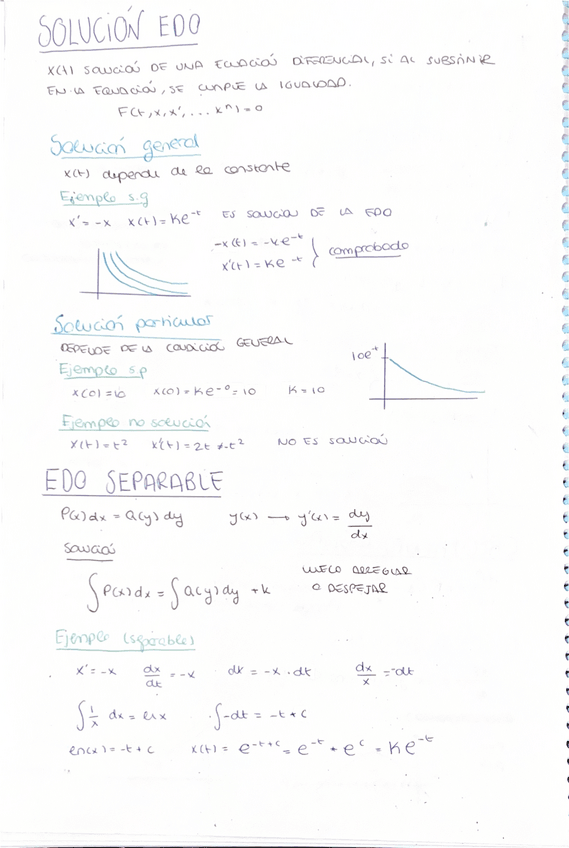 SOLUCIÓN EDO
X(t) SOLUCIÓN DE UNA ECUACIÓN DIFERENCIAL, SI AL SUBSTITUIR
EN LA ECUACIÓN, SE CUMPLE LA IGUALDAD.
F(t, x, x', ... xⁿ) = 0
Solución general
x(t) depende de la constante
Ejemplo s.g
x' = -x x(t) = Ke⁻ᵗ ES SOLUCIÓN DE LA EDO
-x(t) = -ke⁻ᵗ
x'(t) = Ke⁻ᵗ } comprobado
Solución particular
DEPENDE DE LA CONDICIÓN GENERAL
Ejemplo s.p
x(0) = 10 x(0) = Ke⁻⁰ = 10 K = 10
10e⁻ᵗ
Ejemplo no solución
x(t) = t² x'(t) = 2t ≠ -t² NO ES SOLUCIÓN
EDO SEPARABLE
P(x) dx = Q(y) dy y(x) → y'(x) = dy/dx
Solución
∫P(x) dx = ∫Q(y) dy + k
LUEGO ARREGLAR
O DESPEJAR
Ejemplo (separable)
x' = -x dx/dt = -x dx = -x · dt dx/x = -dt
∫ 1/x dx = ln x ∫ -dt = -t + c
ln(x) = -t + c x(t) = e⁻ᵗ⁺ᶜ = e⁻ᵗ + eᶜ = Ke⁻ᵗ